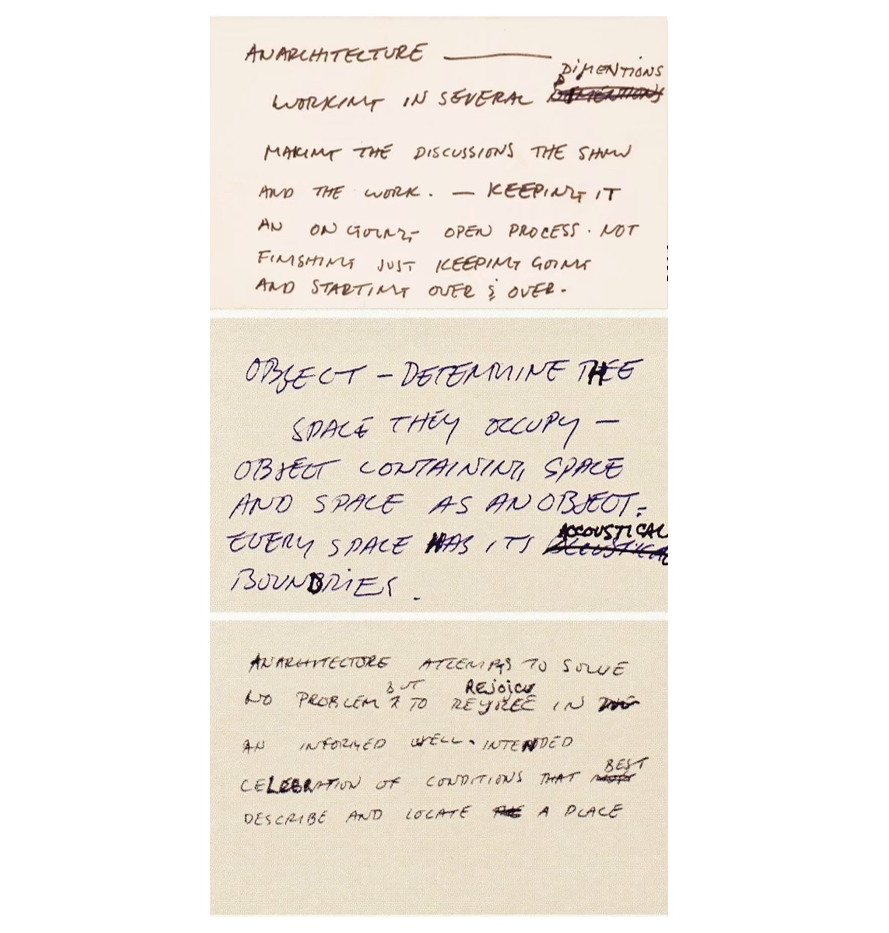 ANARCHITECTURE ———
DIMENTIONS
WORKING IN SEVERAL
MAKING THE DISCUSSIONS THE SHOW
AND THE WORK. — KEEPING IT
AN ON GOING OPEN PROCESS. NOT
FINISHING JUST KEEPING GOING
AND STARTING OVER & OVER.
OBJECT – DETERMINE THE
SPACE THEY OCCUPY –
OBJECT CONTAINING SPACE
AND SPACE AS AN OBJECT.
ACCOUSTICAL
EVERY SPACE HAS ITS
BOUNDRIES.
ANARCHITECTURE ATTEMPTS TO SOLVE
BUT REJOICE
NO PROBLEM TO IN
AN INFORMED WELL-INTENDED
BEST
CELEBRATION OF CONDITIONS THAT
DESCRIBE AND LOCATE A PLACE